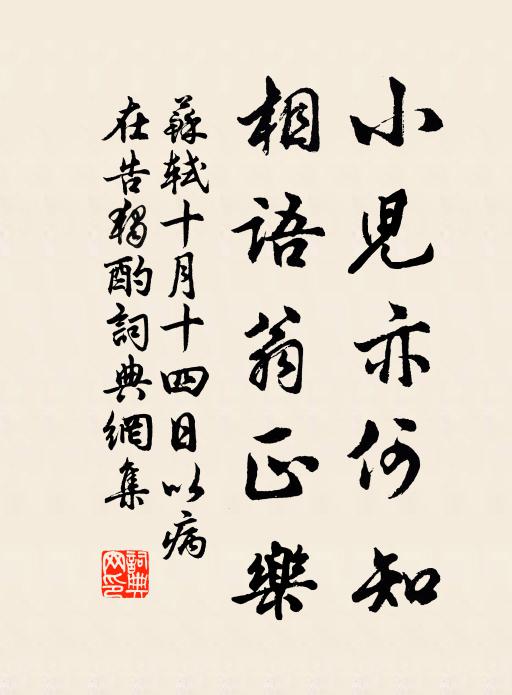 小児亦何知
相語翁正樂
蘇軾十月十四日以病
在告獨酌詞典網集
詞典網印